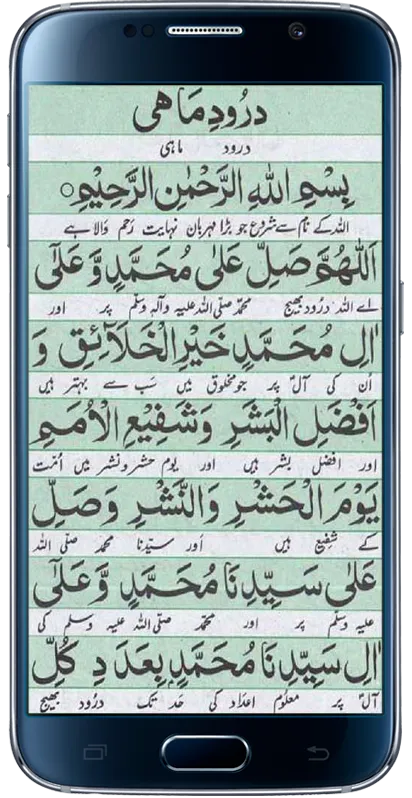 درُودِ مَاهی
درود ماہی
بِسْمِ اللهِ الرَّحْمٰنِ الرَّحِيْمِ○
اللہ کے نام سے شروع جو بڑا مہربان نہایت رحم والا ہے
اَللّٰهُمَّ صَلِّ عَلٰى مُحَمَّدٍ وَّعَلٰٓى
اے اللہ درُود بھیج محمّد صلّی اللہ علیہ وآلہٖ وسلّم پر اور
اٰلِ مُحَمَّدٍ خَيْرِ الْخَلَآئِقِ وَ
اُن کی آلؑ پر جو مخلوق میں سب سے بہتر ہیں
اَفْضَلِ الْبَشَرِ وَشَفِيْعِ الْاُمَمِ
اور افضل بشر ہیں اور یوم حشر و نشر میں اُمّت
يَوْمَ الْحَشْرِ وَالنَّشْرِ وَصَلِّ
کے شفیع ہیں اور سیّدنا محمد صلّی اللہ
عَلٰى سَيِّدِنَا مُحَمَّدٍ وَّعَلٰٓى
علیہ وسلّم پر اور محمّد صلّی اللہ علیہ وسلم کی
اٰلِ سَيِّدِنَا مُحَمَّدٍ بِعَدَدِ كُلِّ
آلؑ پر معلُوم اعداد کی حَد تک درُود بھیج